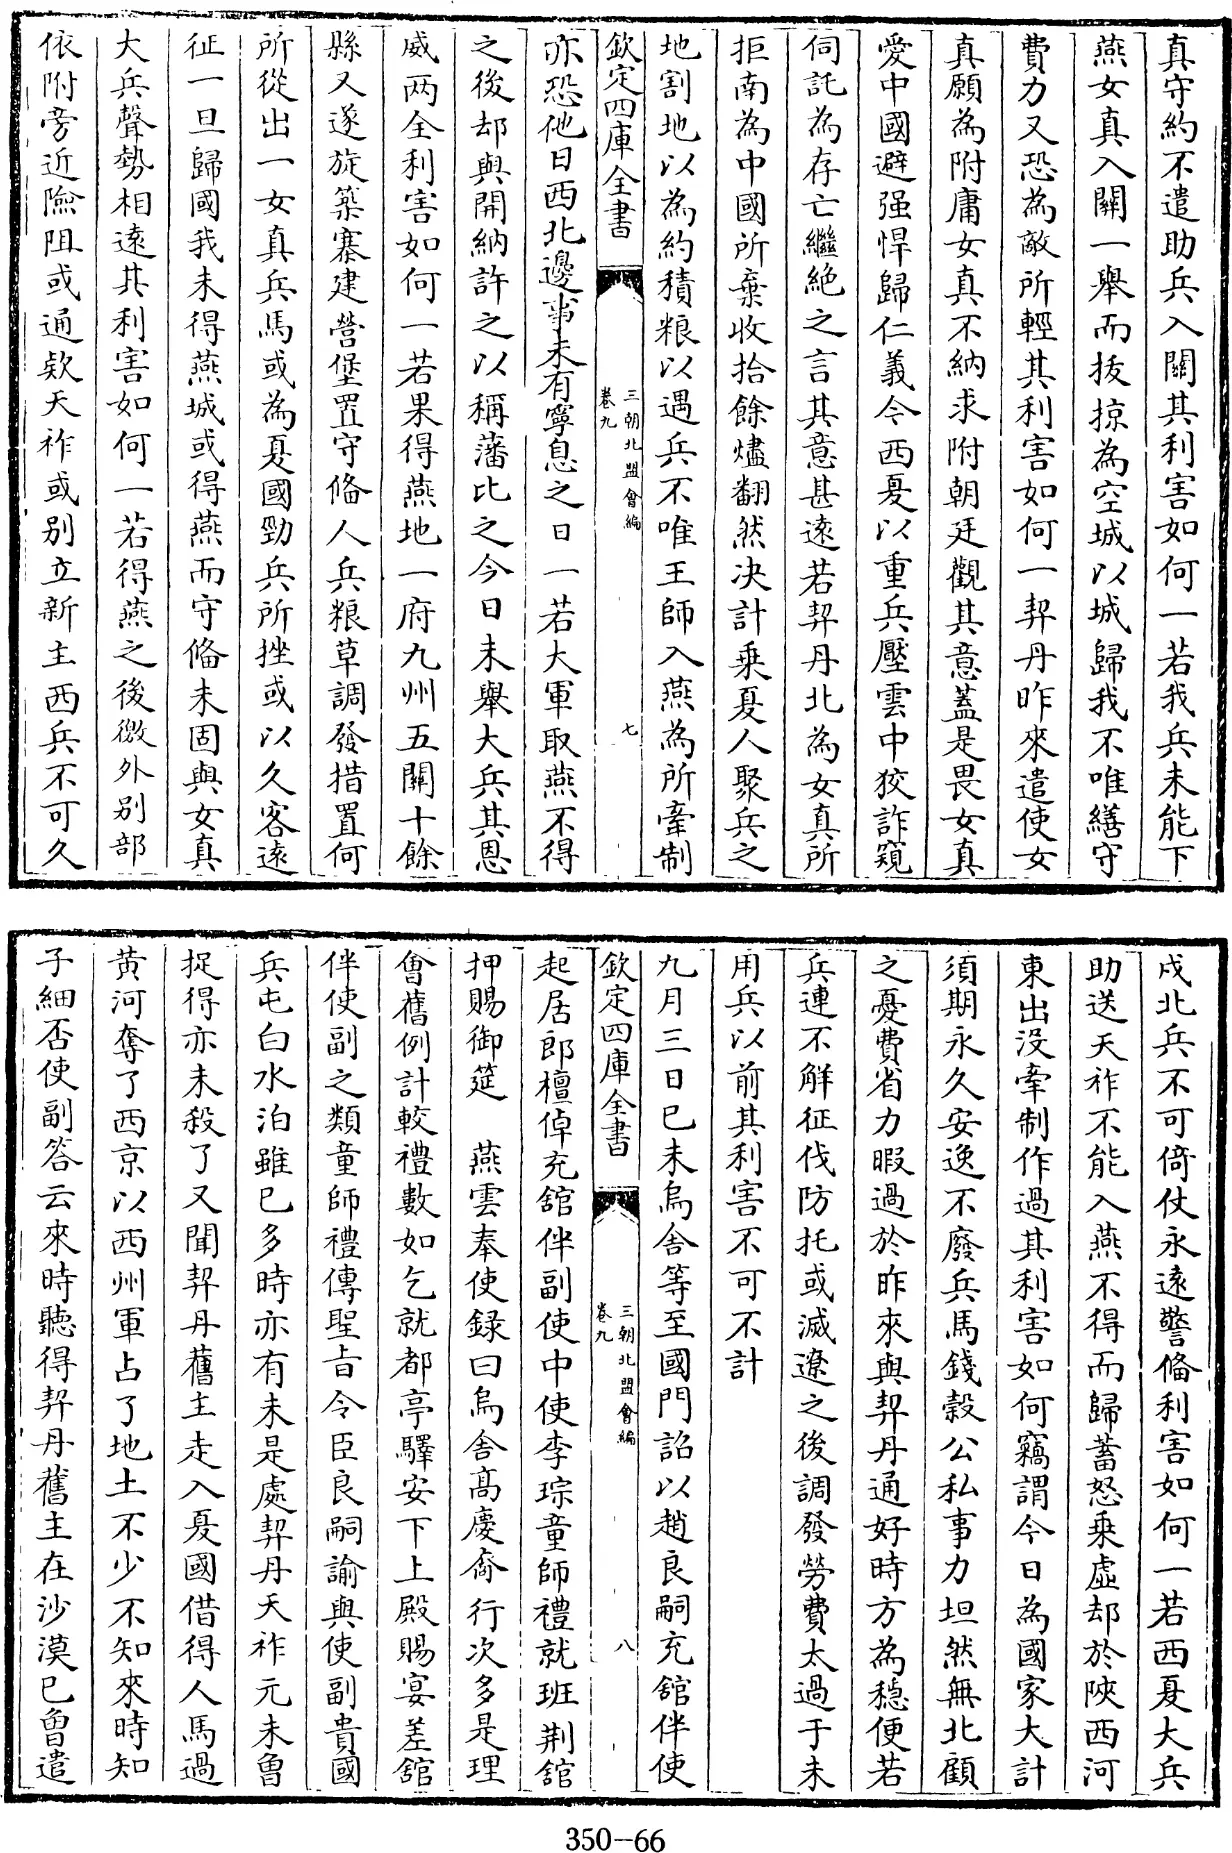 真守約不遣助兵入關其利害如何一若我兵未能下
燕女真入關一舉而拔掠為空城以城歸我不唯繕守
費力又恐為敵所輕其利害如何一契丹昨來遣使女
真願為附庸女真不納求附朝廷觀其意蓋是畏女真
愛中國避强悍歸仁義今西夏以重兵壓雲中狡詐窺
伺託為存亡繼絶之言其意甚遠若契丹北為女真所
拒南為中國所棄收拾餘燼翻然决計乗夏人聚兵之
地割地以為約積粮以遇兵不唯王師入燕為所牽制
欽定四庫全書
三朝北盟會編
卷九
七
亦恐他日西北邊事未有寧息之日一若大軍取燕不得
之後却與開納許之以稱藩比之今日未舉大兵其恩
威两全利害如何一若果得燕地一府九州五關十餘
縣又遂旋築寨建營堡置守俻人兵粮草調發措置何
所從出一女真兵馬或為夏國勁兵所挫或以久客遠
征一旦歸國我未得燕城或得燕而守俻未固與女真
大兵聲勢相遠其利害如何一若得燕之後徼外别部
依附旁近險阻或通欵天祚或别立新主西兵不可久
戍北兵不可倚仗永遠警俻利害如何一若西夏大兵
助送天祚不能入燕不得而歸蓄怒乗虚却於陜西河
東出没牽制作過其利害如何竊謂今日為國家大計
須期永久安逸不廢兵馬錢穀公私事力坦然無北顧
之憂費省力暇過於昨來與契丹通好時方為穏便若
兵連不解征伐防托或滅遼之後調發勞費太過于未
用兵以前其利害不可不計
九月三日已未烏舍等至國門詔以趙良嗣充舘伴使
欽定四庫全書
三朝北盟會編
卷九
八
起居郎檀倬充舘伴副使中使李琮童師禮就班荆舘
押賜御筵 燕雲奉使録曰烏舍髙慶裔行次多是理
㑹舊例計較禮數如乞就都亭驛安下上殿賜宴差舘
伴使副之類童師禮傳聖㫖令臣良嗣諭與使副貴國
兵屯白水泊雖已多時亦有未是處契丹天祚元未曾
捉得亦未殺了又聞契丹舊主走入夏國借得人馬過
黄河奪了西京以西州軍占了地土不少不知來時知
子細否使副答云來時聽得契丹舊主在沙漠已曾遣
350-66